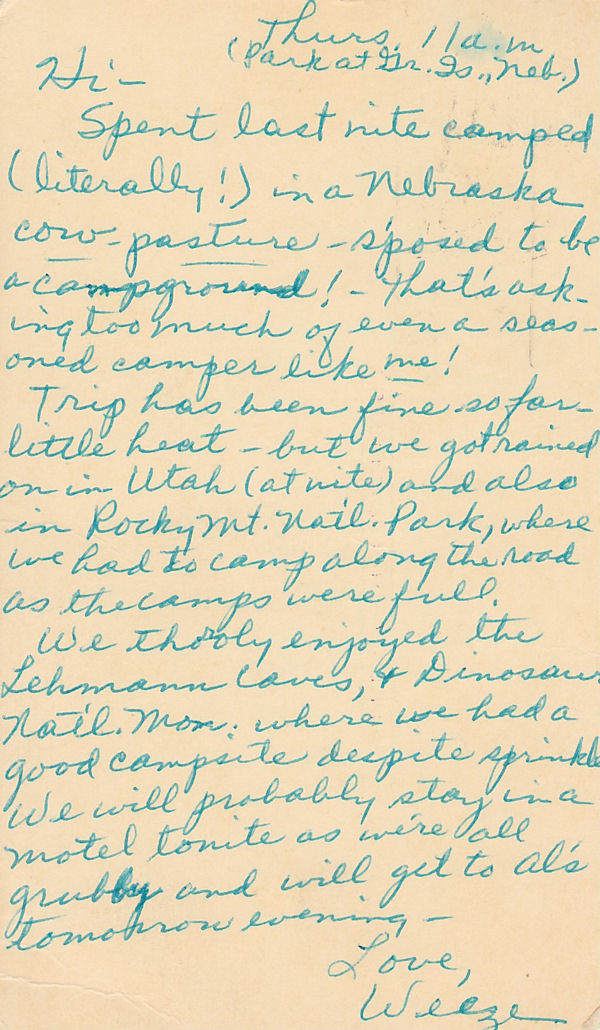 Thurs. 11 a.m
(Park at Gr. Is., Neb.)
Hi -
Spent last nite camped
(literally!) in a Nebraska
cow-pasture - s'posed to be
a campground! - That's ask-
ing too much of even a seas-
oned camper like me!
Trip has been fine so far -
little heat - but we got rained
on in Utah (at nite) and also
in Rocky Mt. Nat'l. Park, where
we had to camp along the road
as the camps were full.
We thoroly enjoyed the
Lehmann Caves, & Dinosaur
Nat'l. Mon. where we had a
good campsite despite sprinkle
We will probably stay in a
motel tonite as we're all
grubby and will get to Al's
tomorrow evening -
Love,
Weeze